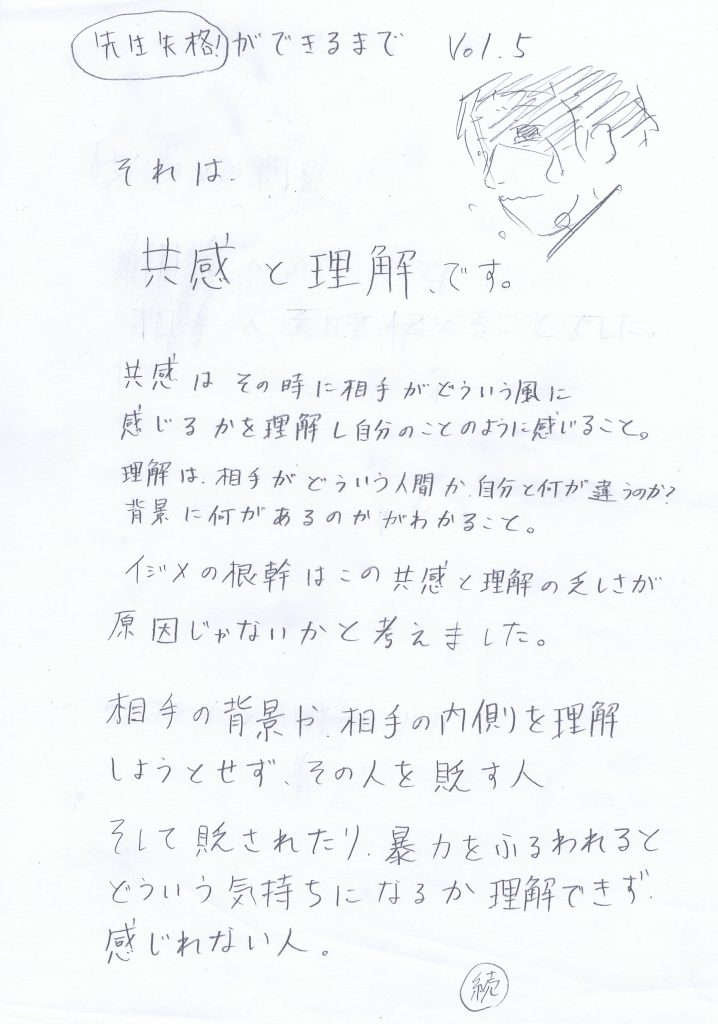 先生失格!ができるまで Vol.5
それは、
共感と理解、です。
共感はその時に相手がどういう風に
感じるかを理解し自分のことのように感じること。
理解は、相手がどういう人間か、自分と何が違うのか?
背景に何があるのかがわかること。
イジメの根幹はこの共感と理解の乏しさが
原因じゃないかと考えました。
相手の背景や、相手の内側を理解
しようとせず、その人を貶す人
そして貶されたり、暴力をふるわれると
どういう気持ちになるか理解できず、
感じれない人。
続